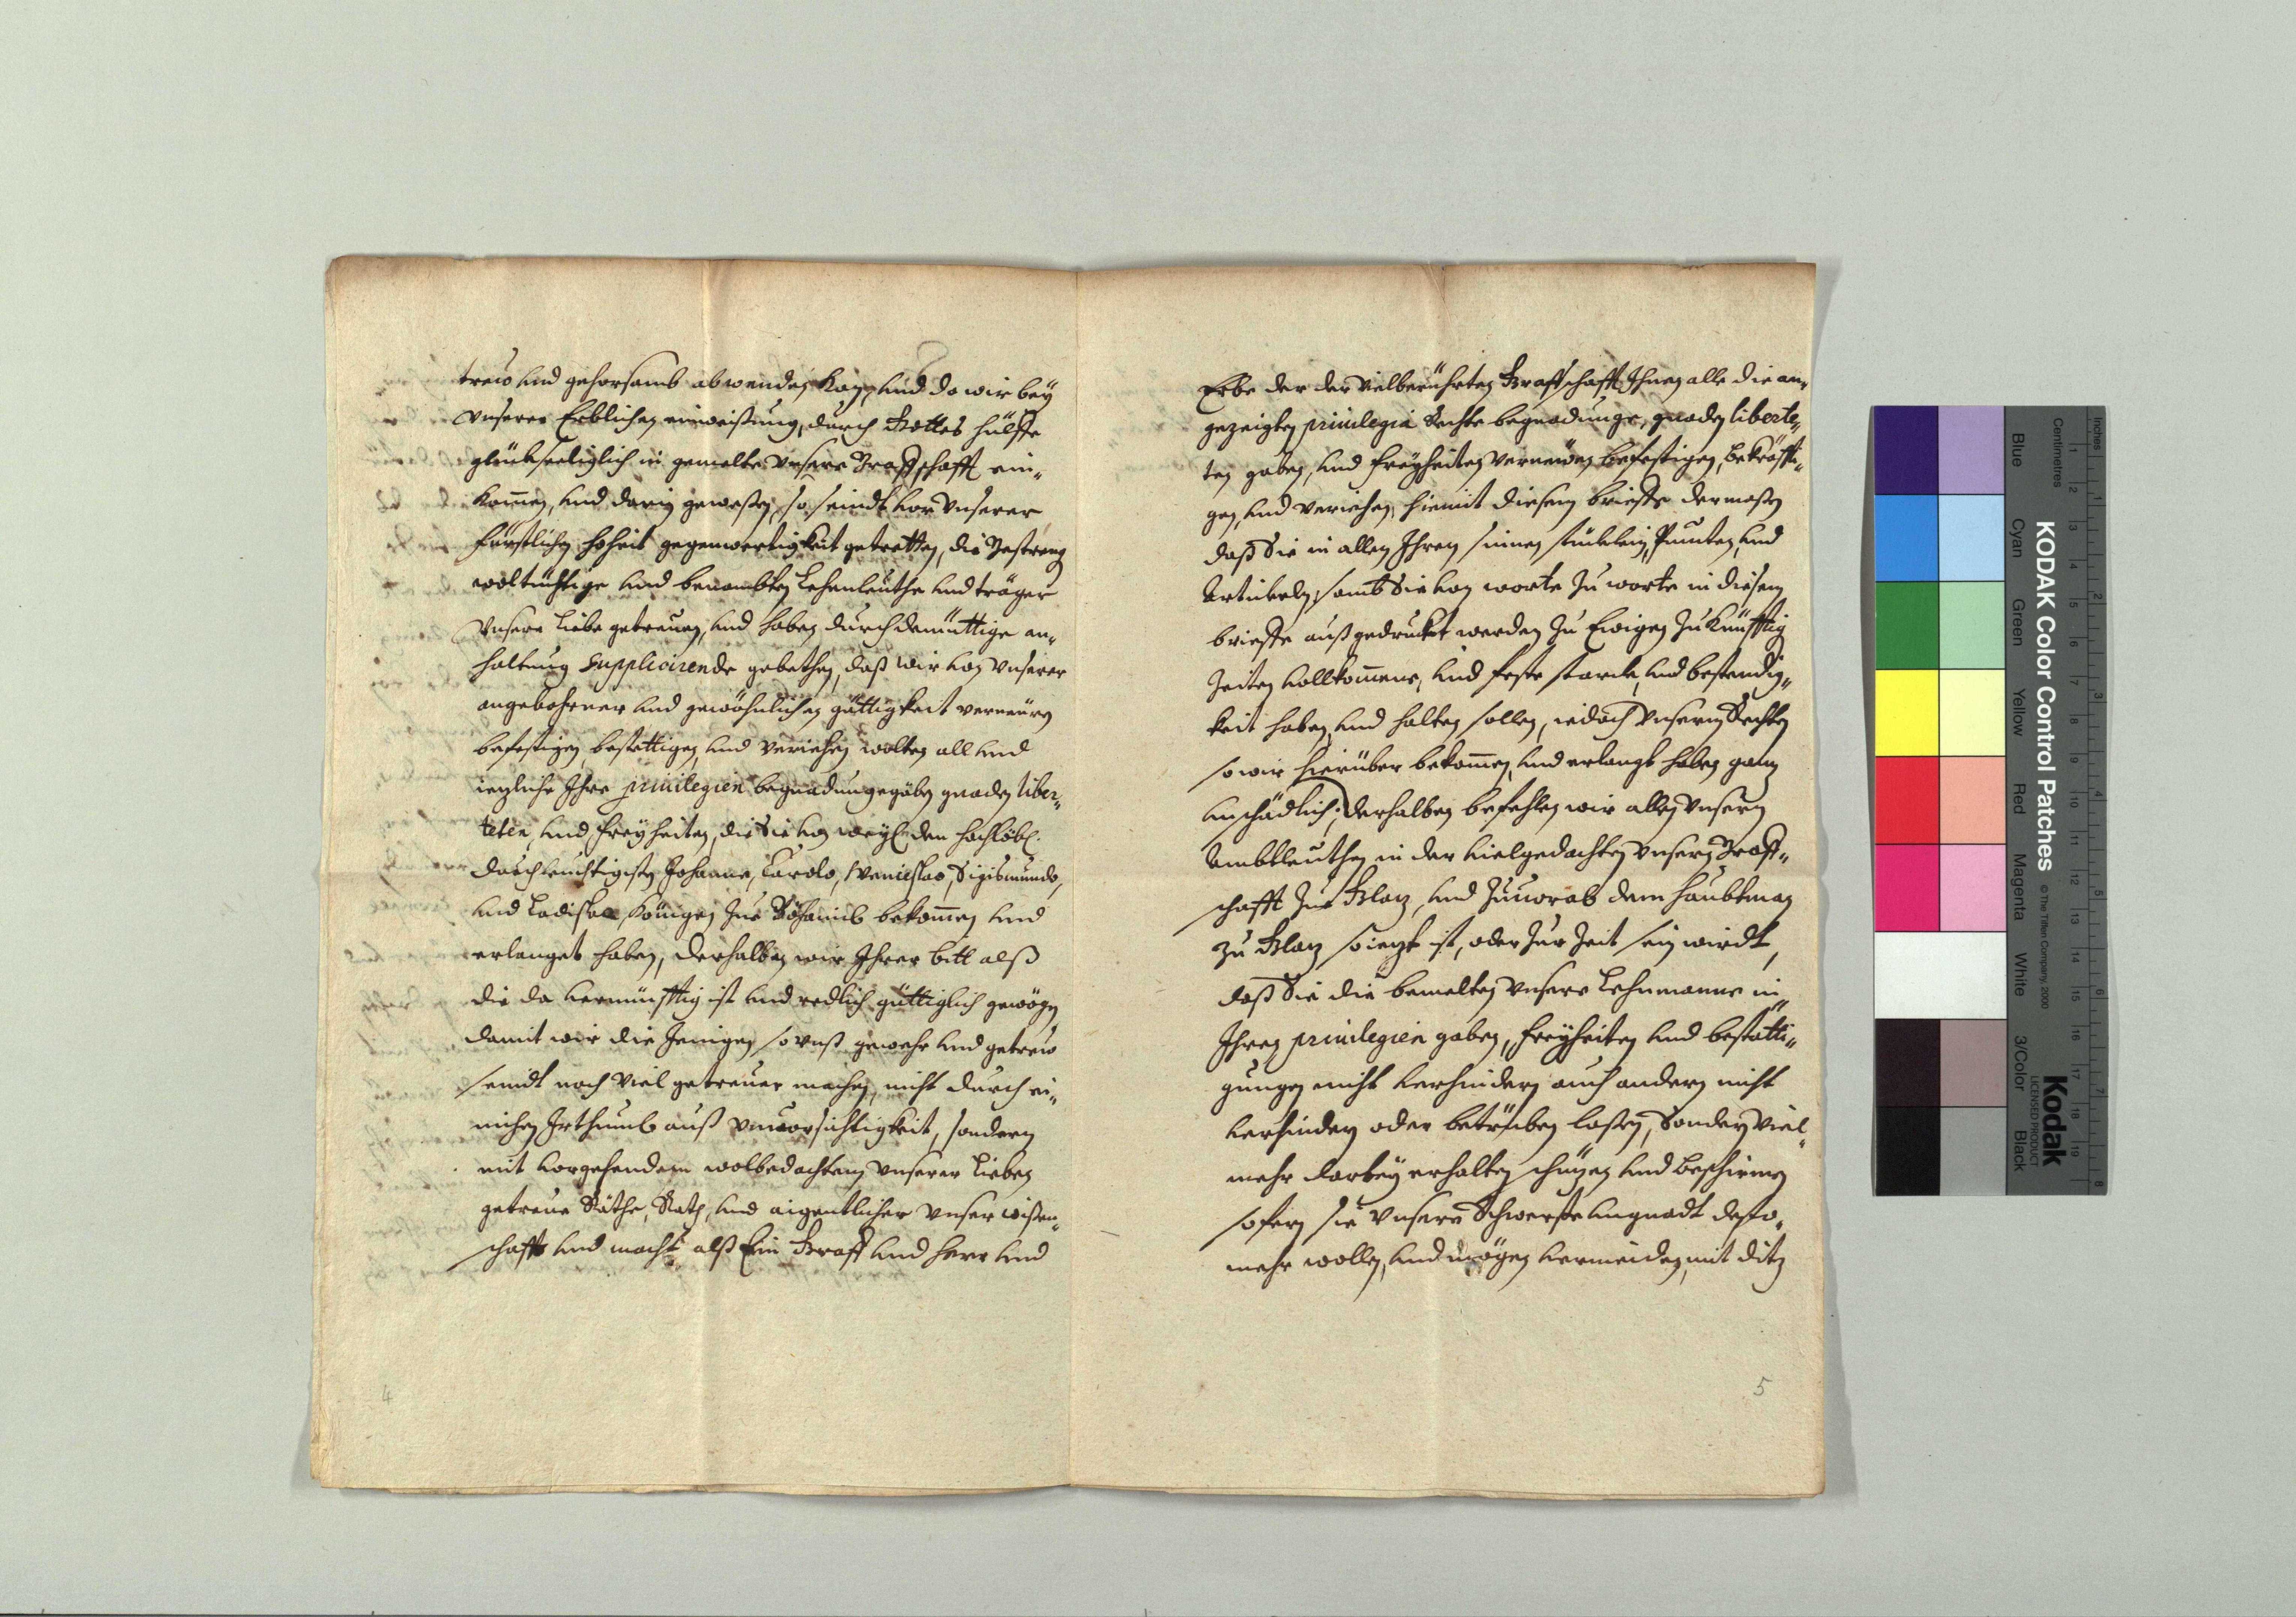 treu vnd gehorsamb abwenden kan, vnd da wir bey
vnserer Erblichen einweisung, durch Gottes hülffe
glükseeliglich in gemelte vnsere Graffschafft ein„
kom̄en, vnd darin gewesen, so seindt vor vnserer
fürstlichen hoheit gegenwertigkeit getretten, die Gestreng
woltüchtige vnd benambten Lehenleuthe vnd träger
vnsere Liebe getreuen, vnd haben durch demüttige an„
haltung Supplicirende gebethen, daß wir von vnserer
angebohrner vnd gewöhnlichen güttigkeit verneüren
befestigen, bestettigen, vnd verleihen wolten all vnd
iezliche Ihre privilegien begnadung gaben gnaden liber„
teten, vnd freyheiten, die Sie von weyl. den hochlöbl.
durchleuchtigisten Johanne, Carolo, Wenceslao, Sigismundo,
vnd Ladislao Königen zue Böhaimb bekom̄en vnd
erlanget haben, derhalben wir Ihrer bitt alß
die da vernünfftig ist vnd redlich güttiglich gewögen
damit wir die Jenigen so vnß gewehr vnd getreu
seindt noch viel getreuer machen, nicht durch ei„
nichen Irthumb auß vnuorsichtigkeit, sondern
mit vorgehendem wolbedachtem vnserer Lieben
getreue Räthe, Rath, vnd aigentlicher vnser wissen„
schafft vnd macht alß Ein Graff vnd herr vnd
4
Erbe der der vielberührten Graffschafft Ihnen alle die an„
gezeigten privilegia Rechte begnadunge, gnaden liberte„
ten gaben, vnd freyheiten verneüen befestigen, bekräffti„
gen, vnd verleihen, hiemit diesem brieffe dermaßen
daß Sie in allen Ihren sinnen stüklein, Puncten, vnd
Articeln, samb Sie von worte zu worte in diesem
brieffe außgedrukt werden zu Ewigen zukünfftig
zeiten vollkom̄ene, vnd feste starcke, vnd bestendig„
keit haben, vnd halten sollen, iedoch vnsern Rechten
so wir hierüber bekom̄en, vnd erlangt haben ganz
vnschädlich; derhalben befehlen wir allen vnsern
Ambtleuthen in der vielgedachten vnsern Graff„
schafft zue Glaz, vnd zuuorab dem haubtman
zu Glaz so iezt ist, oder zur zeit sein wirdt,
daß Sie die bemelten vnsere Lehenmanne in
Ihren privilegien gaben, freyheiten vnd bestätti„
gungen nicht verhindern auch andern nicht
verhindern oder betrüben lassen, Sondern viel„
mehr darbey erhalten schüzen vnd beschirmen
sofern sie vnsere Schwerste vngnadt desto„
mehr wollen, vnd mögen vermeiden, mit ditz
5
KODAK Color Control Patches
© The Tiffen Company, 2000
Kodak
LICENSED PRODUCT
Blue Cyan Green Yellow Red Magenta White 3/Color Black
Inches 1 2 3 4 5 6 7 8
Centimetres 1 2 3 4 5 6 7 8 9 10 11 12 13 14 15 16 17 18 19